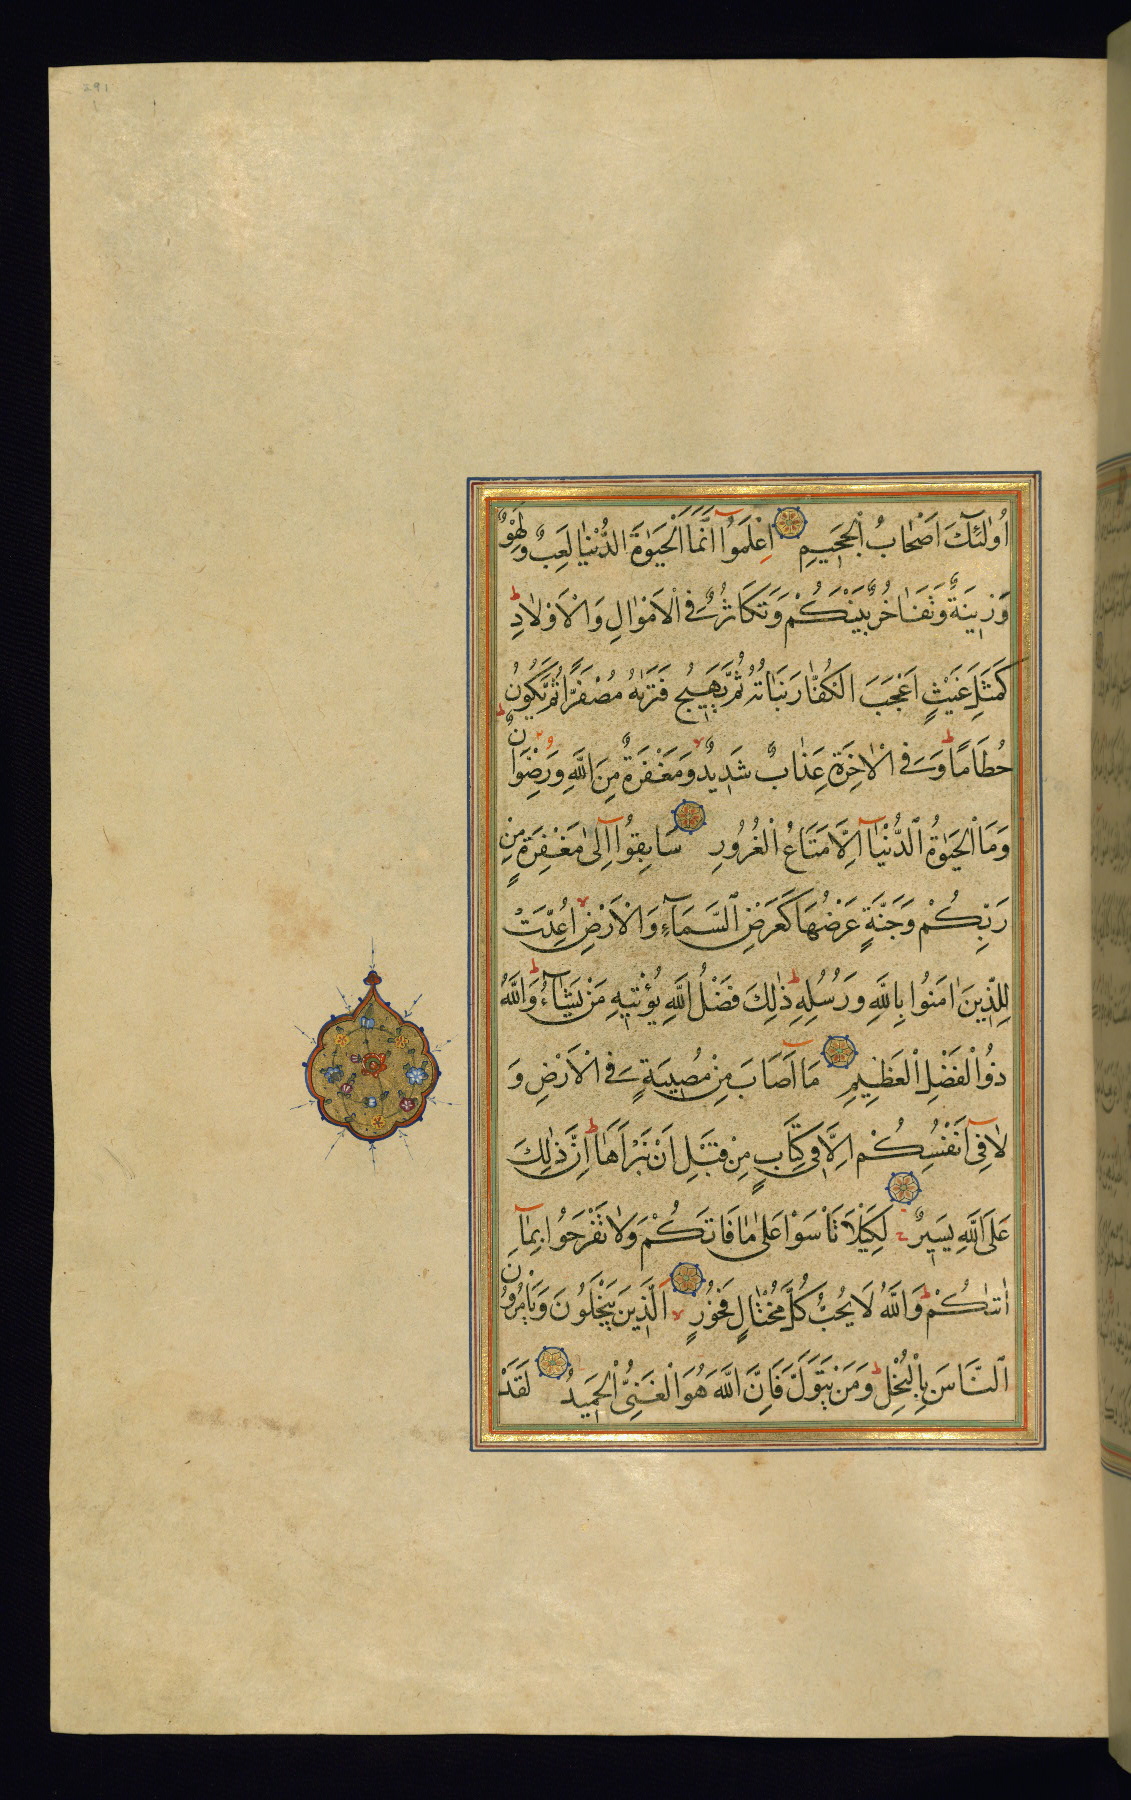 291
اُولٰئِكَ اَصْحَابُ الْجَحِيمِ اِعْلَمُوا اَنَّمَا الْحَيٰوةُ الدُّنْيَا لَعِبٌ وَلَهْوٌ
وَزِينَةٌ وَتَفَاخُرٌ بَيْنَكُمْ وَتَكَاثُرٌ فِى الْاَمْوَالِ وَالْاَوْلَادِ ط
كَمَثَلِ غَيْثٍ اَعْجَبَ الْكُفَّارَ نَبَاتُهُ ثُمَّ يَهِيجُ فَتَرٰيهُ مُصْفَرًّا ثُمَّ يَكُونُ
حُطَامًا ط وَفِى الْاٰخِرَةِ عَذَابٌ شَدِيدٌ لا وَمَغْفِرَةٌ مِنَ اللّٰهِ وَرِضْوَانٌ ط
وَمَا الْحَيٰوةُ الدُّنْيَا اِلَّا مَتَاعُ الْغُرُورِ سَابِقُوا اِلٰى مَغْفِرَةٍ مِنْ
رَبِّكُمْ وَجَنَّةٍ عَرْضُهَا كَعَرْضِ السَّمَاءِ وَالْاَرْضِ لا اُعِدَّتْ
لِلَّذِينَ اٰمَنُوا بِاللّٰهِ وَرُسُلِهِ ط ذٰلِكَ فَضْلُ اللّٰهِ يُؤْتِيهِ مَنْ يَشَاءُ ط وَاللّٰهُ
ذُو الْفَضْلِ الْعَظِيمِ مَا اَصَابَ مِنْ مُصِيبَةٍ فِى الْاَرْضِ وَ
لَا فِى اَنْفُسِكُمْ اِلَّا فِى كِتَابٍ مِنْ قَبْلِ اَنْ نَبْرَاَهَا ط اِنَّ ذٰلِكَ
عَلَى اللّٰهِ يَسِيرٌ لِكَيْلَا تَاْسَوْا عَلٰى مَا فَاتَكُمْ وَلَا تَفْرَحُوا بِمَا
اٰتٰيكُمْ ط وَاللّٰهُ لَا يُحِبُّ كُلَّ مُخْتَالٍ فَخُورٍ لا اَلَّذِينَ يَبْخَلُونَ وَيَاْمُرُونَ
النَّاسَ بِالْبُخْلِ ط وَمَنْ يَتَوَلَّ فَاِنَّ اللّٰهَ هُوَ الْغَنِىُّ الْحَمِيدُ لَقَدْ